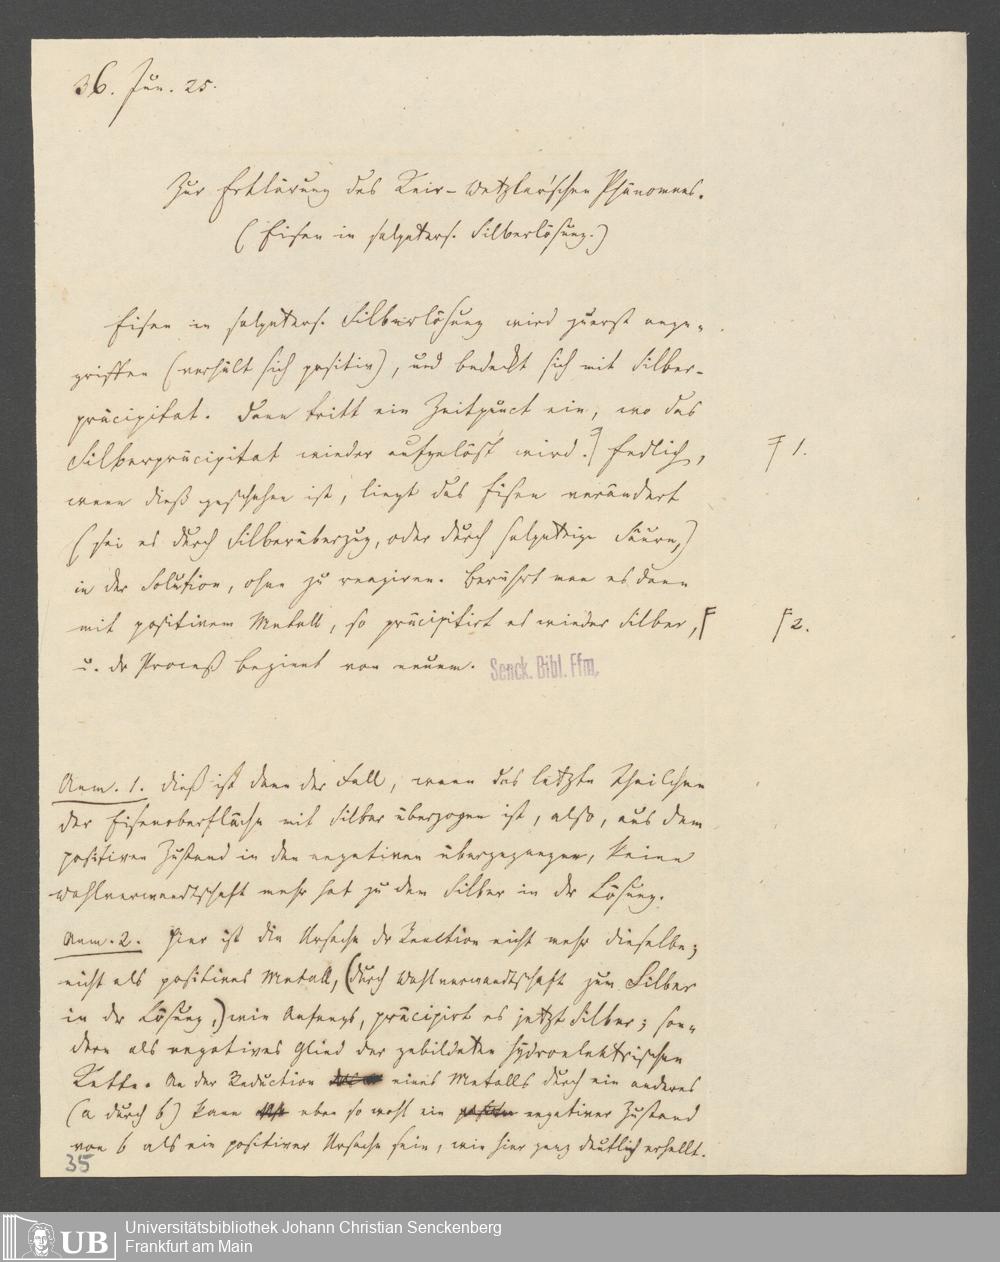 36. Jun. 25.
Zur Erklärung des Keir-Wetzlar'schen Phänomens.
(Eisen in salpeters. Silberlösung.)
Eisen in salpeters. Silberlösung wird zuerst ange-
griffen (verhält sich positiv), und bedeckt sich mit Silber-
präcipitat. Dann tritt ein Zeitpunct ein, wo das
Silberpräcipitat wieder aufgelöst wird. Endlich,
F 1.
wenn dieß geschehen ist, liegt das Eisen verändert
(sei es durch Silberüberzug, oder durch salpetrige Säure,)
in der Solution, ohne zu reagiren. Berührt man es dann
mit positivem Metall, so präcipitirt es wieder Silber, F
F 2.
u. dr Proceß beginnt von neuem.
Senck. Bibl. Ffm.
Anm. 1. Dieß ist dann der Fall, wenn das letzte Theilchen
der Eisenoberfläche mit Silber überzogen ist, also, aus dem
positiven Zustand in den negativen übergegangen, keine
Wahlverwandtschaft mehr hat zu dem Silber in dr Lösung.
Anm. 2. Hier ist die Ursache dr Reaction nicht mehr dieselbe;
nicht als positives Metall, (durch Wahlverwandtschaft zum Silber
in dr Lösung,) wie Anfangs, präcipirt es jetzt Silber; son-
dern als negatives Glied der gebildeten hydroelektrischen
Kette. An der Reduction eines Metalls durch ein anderes
(a durch b) kann eben so wohl ein negativer Zustand
von b als ein positiver Ursache sein, wie hier ganz deutlich erhellt.
35
UB
Universitätsbibliothek Johann Christian Senckenberg
Frankfurt am Main